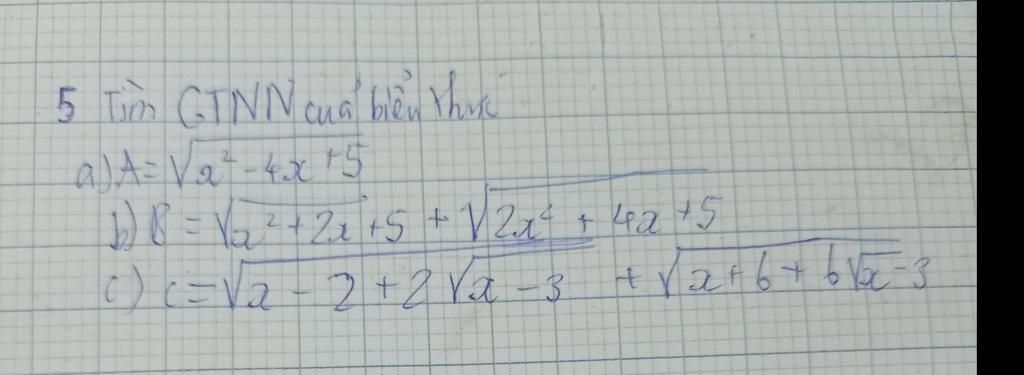 5 Tìm GTNN của biểu thức
a) A = √x² - 4x + 5
b) B = √x² + 2x + 5 + √2x² + 4x + 5
c) C = √x - 2 + 2√x - 3 + √x + 6 + 6√x - 3